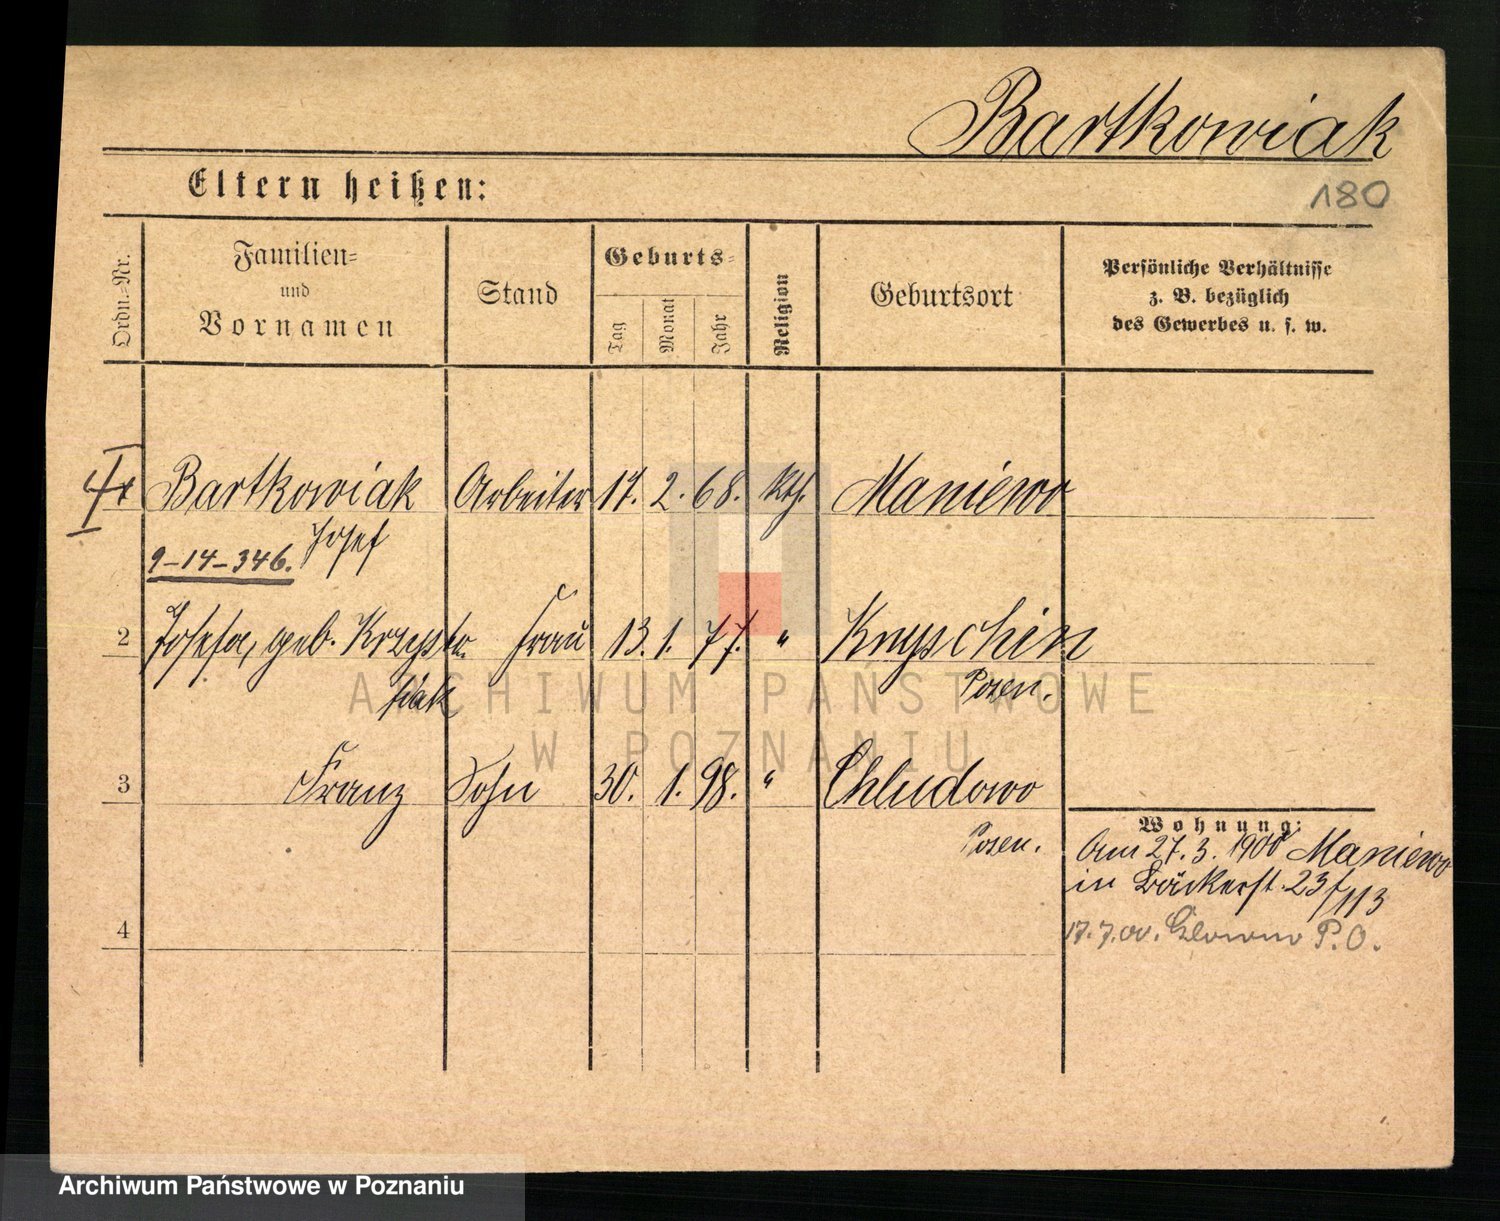 Bartkowiak
180
Eltern heißen:
Ordn.=Nr.
Familien=
und
Vornamen
Stand
Geburts=
Tag
Monat
Jahr
Religion
Geburtsort
Persönliche Verhältnisse
z. B. bezüglich
des Gewerbes u. s. w.
Bartkowiak Arbeiter 17. 2. 68. Kth. Maniewo
Josef
9-14-346.
2 Josefa, geb. Krzyszto Frau 13. 1. 77. " Knyschin
fiak Posen.
3 Franz Sohn 30. 1. 98. " Chludowo
Posen.
Wohnung:
Am 27.3. 1900 Maniewo
in Bäckerst. 23 / 113
4
17.7.00. P.O.
ARCHIWUM PAŃSTWOWE
W POZNANIU
Archiwum Państwowe w Poznaniu